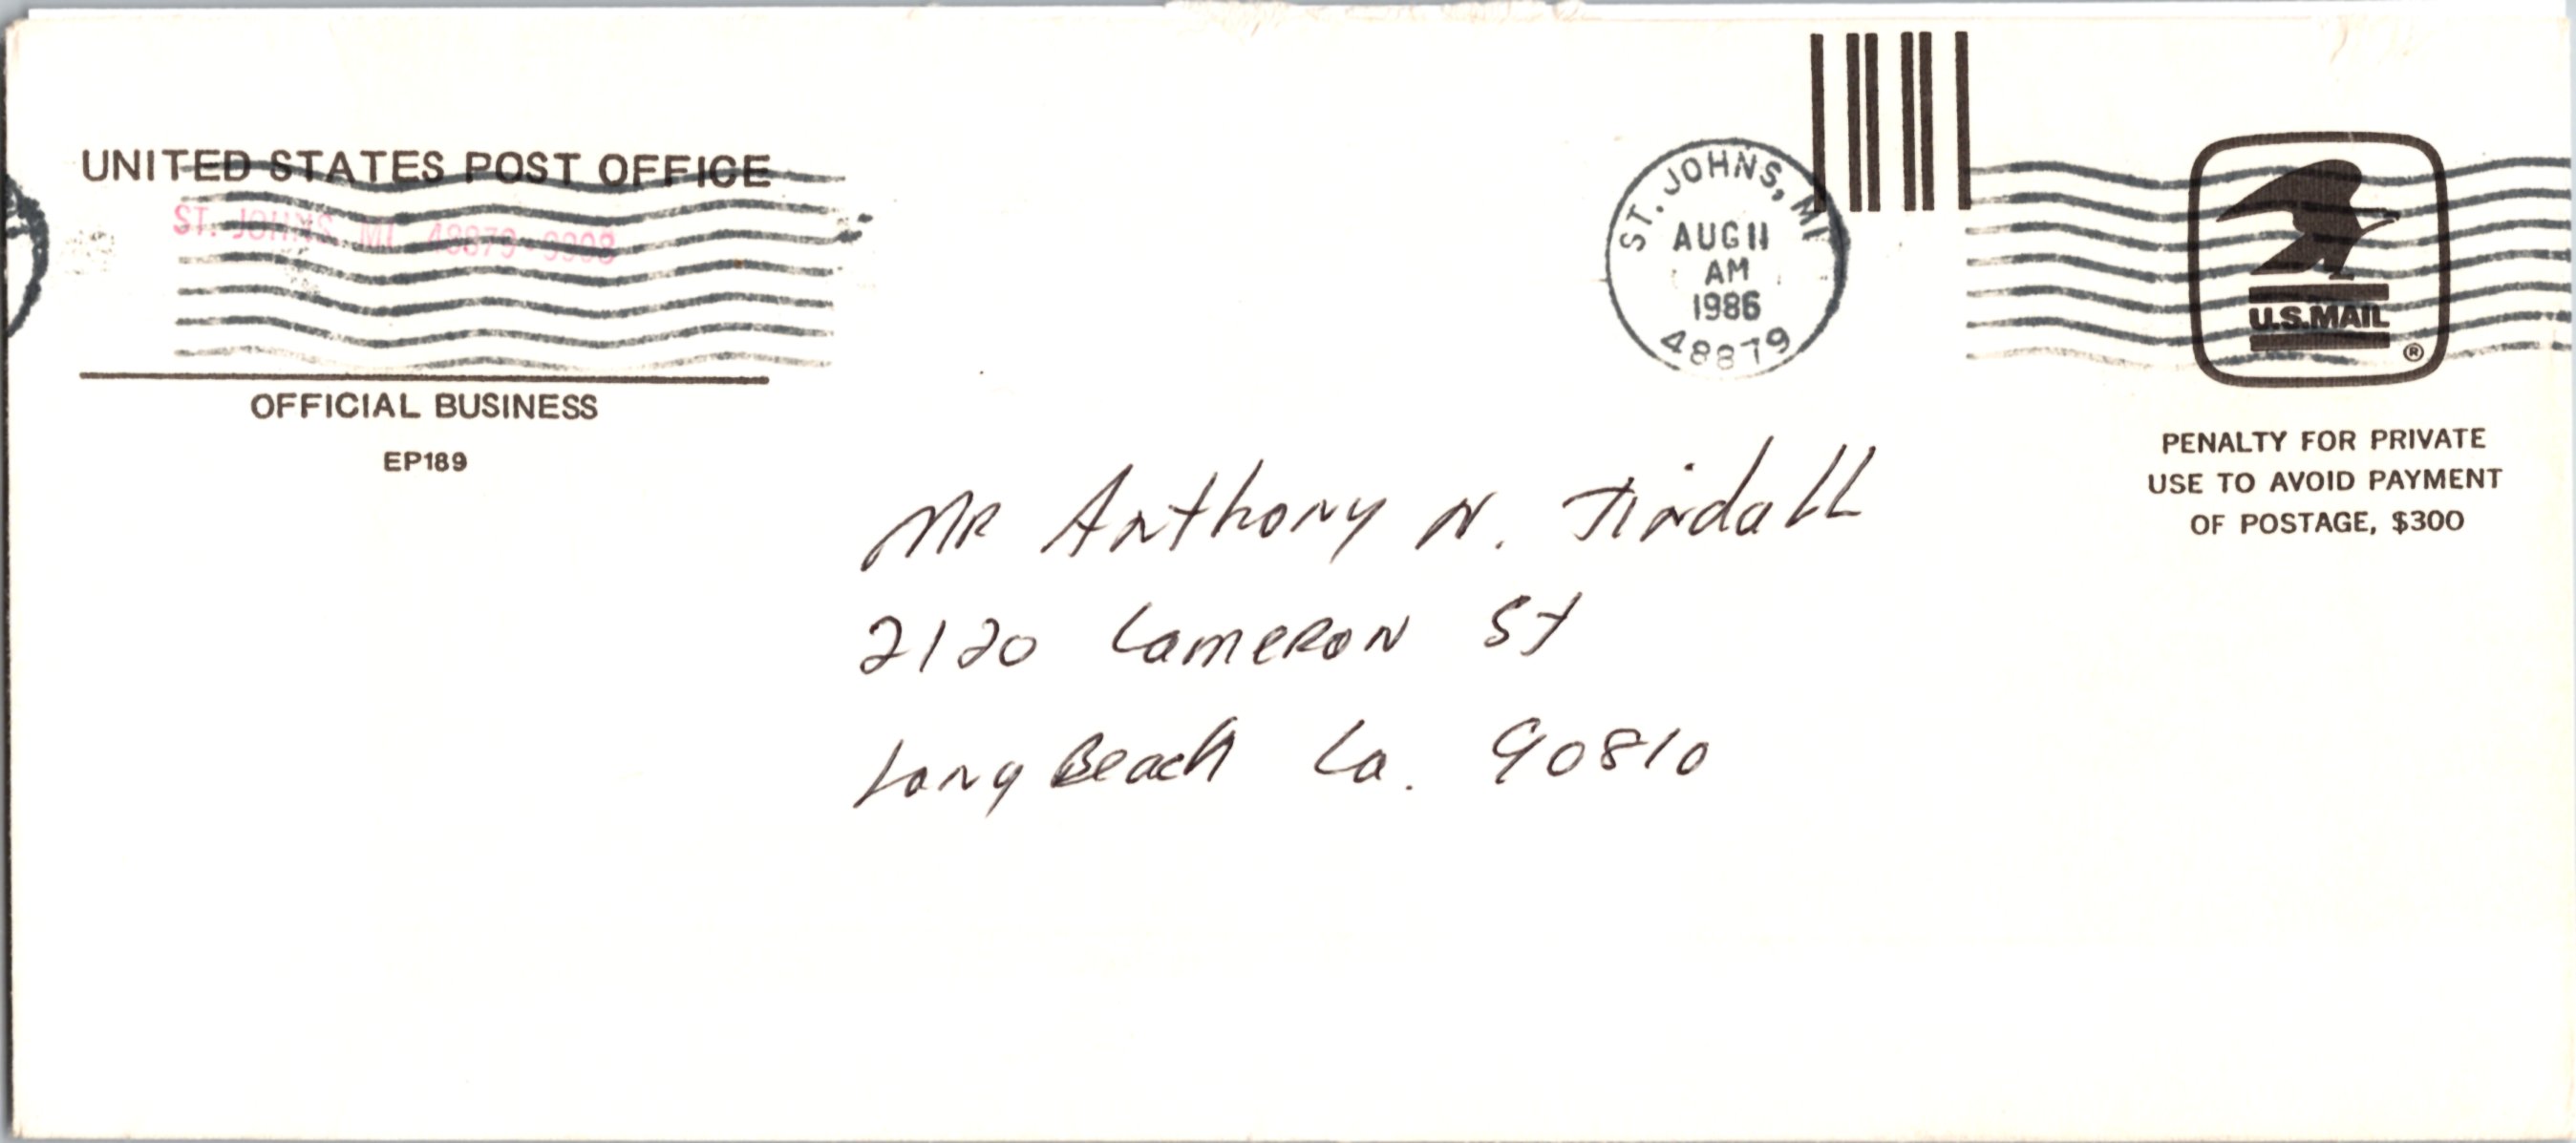 UNITED STATES POST OFFICE
ST. JOHNS, MI 48879-9998
OFFICIAL BUSINESS
EP189
ST. JOHNS, MI
AUG 11
AM
1986
48879
U.S.MAIL
®
PENALTY FOR PRIVATE
USE TO AVOID PAYMENT
OF POSTAGE, $300
Mr Anthony N. Tindall
2120 Cameron St
Long Beach Ca. 90810